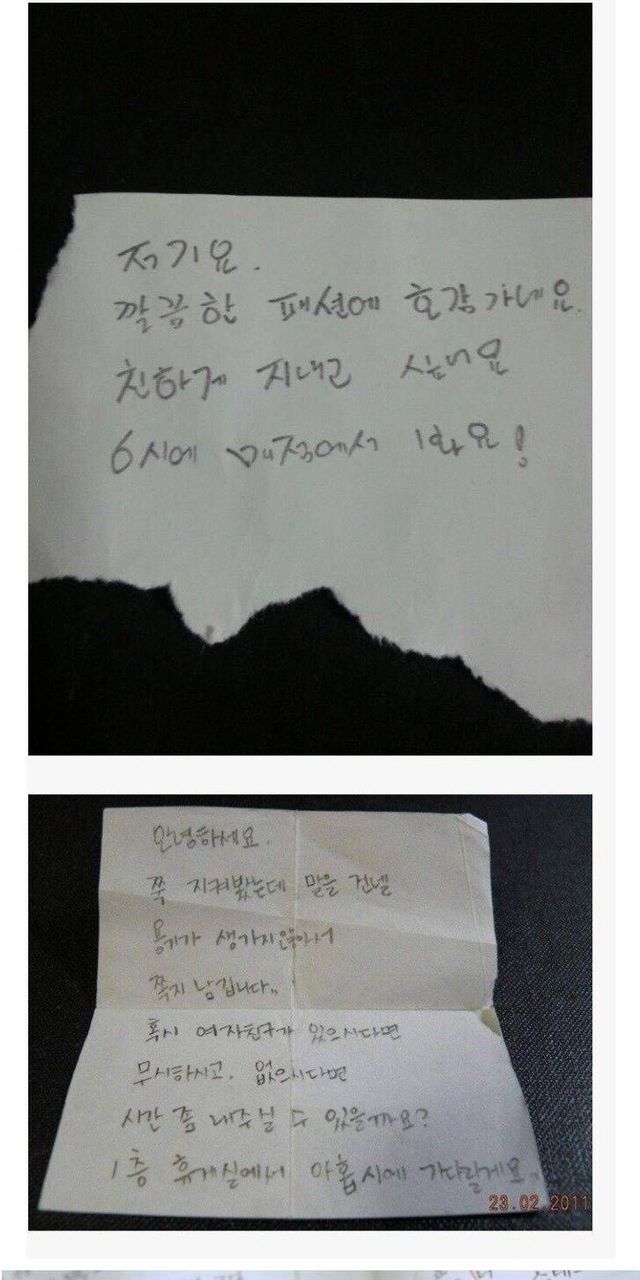 저기요.
깔끔한 패션에 호감가네요.
친하게 지내고 싶네요
6시에 매점에서 봐요!
안녕하세요.
쭉 지켜봤는데 말을 건넬
용기가 생기지않아서
쪽지 남깁니다..
혹시 여자친구가 있으시다면
무시하시고. 없으시다면
시간 좀 내주실 수 있을까요?
1층 휴게실에서 아홉시에 기다릴게요..
23.02.2011